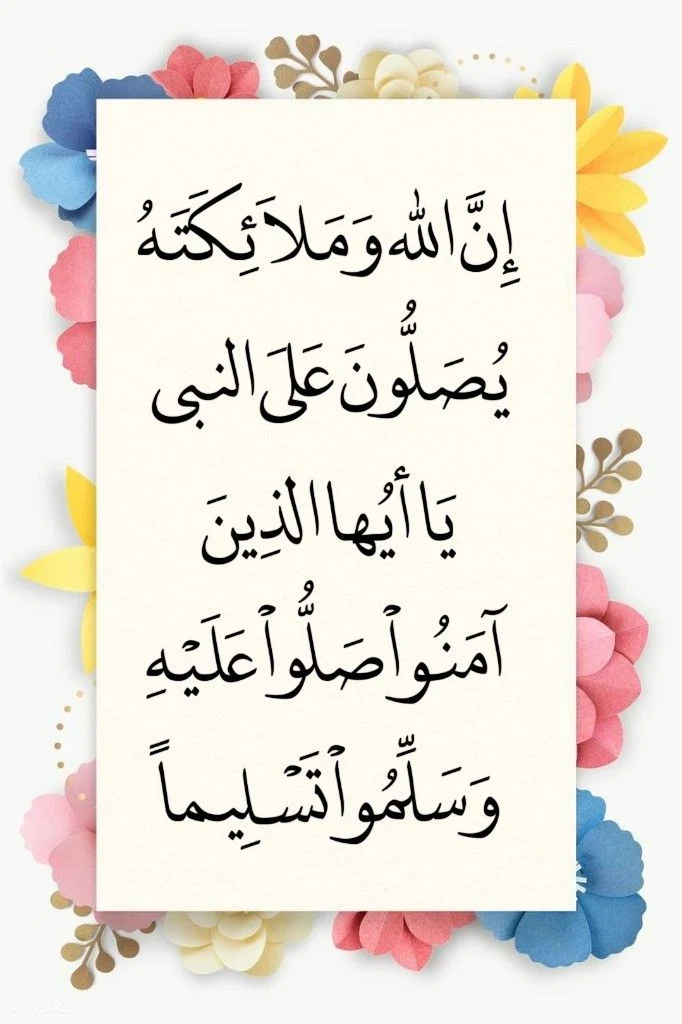 إِنَّ الله وَمَلاَئِكَتَهُ
يُصَلُّونَ عَلَى النبى
يَا أَيُها الذِينَ
آمَنُواْ صَلُّواْ عَلَيْهِ
وَسَلِّمُواْ تَسْلِيماً